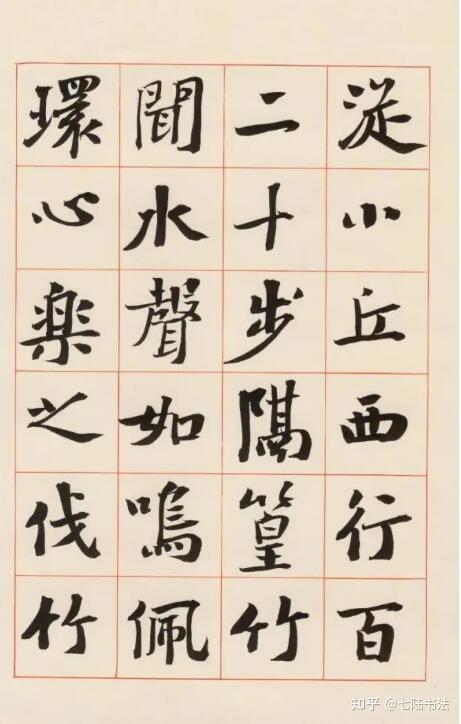 從小丘西行百
二十步隔篁竹
聞水聲如鳴佩
環心樂之伐竹
知乎 @七陆书法